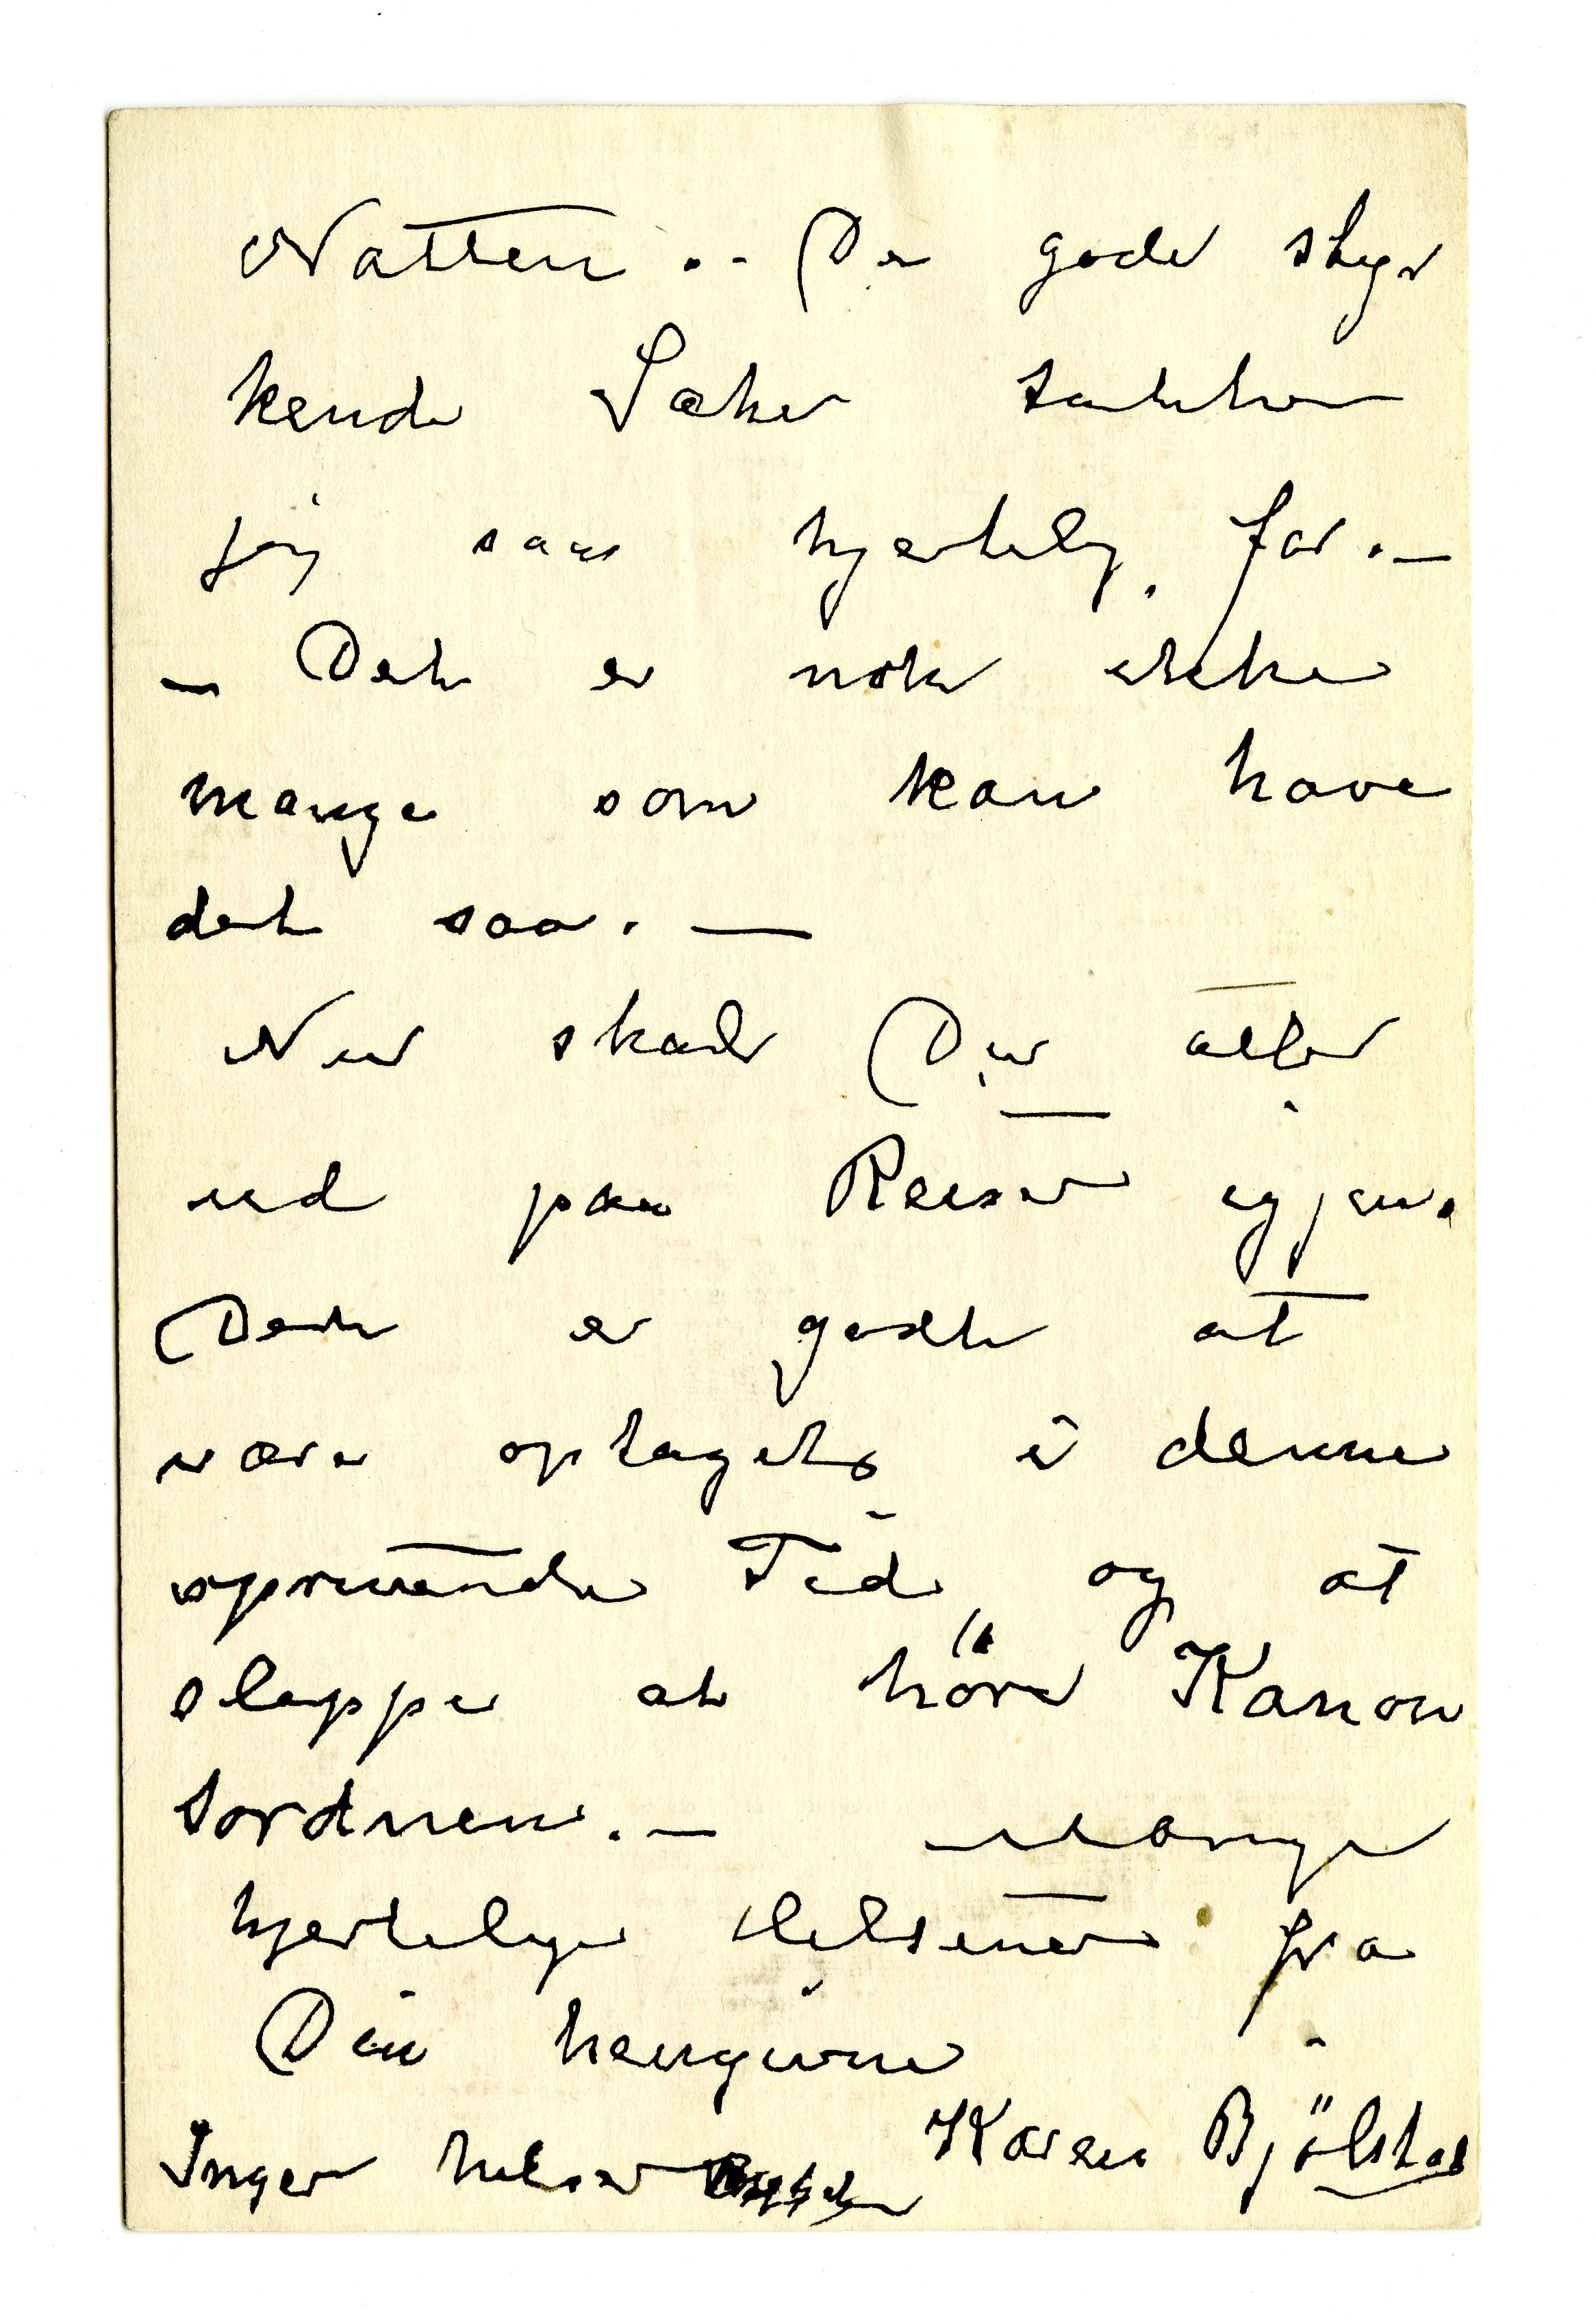 Natten .- De gode styr
kende Saker takker
jeg saa hjertelig for.-
- Det er nok ikke
mange som kan have
det saa. -
Nu skal Du atter
ud paa Reiser igjen.
Det er godt at
være optaget i denne
oprivende Tid og at
slappe at höre Kanon
tordnen.- Mange
hjertelige Helsener fra
Din hengivne
Karen Bjölstad
Inger helser